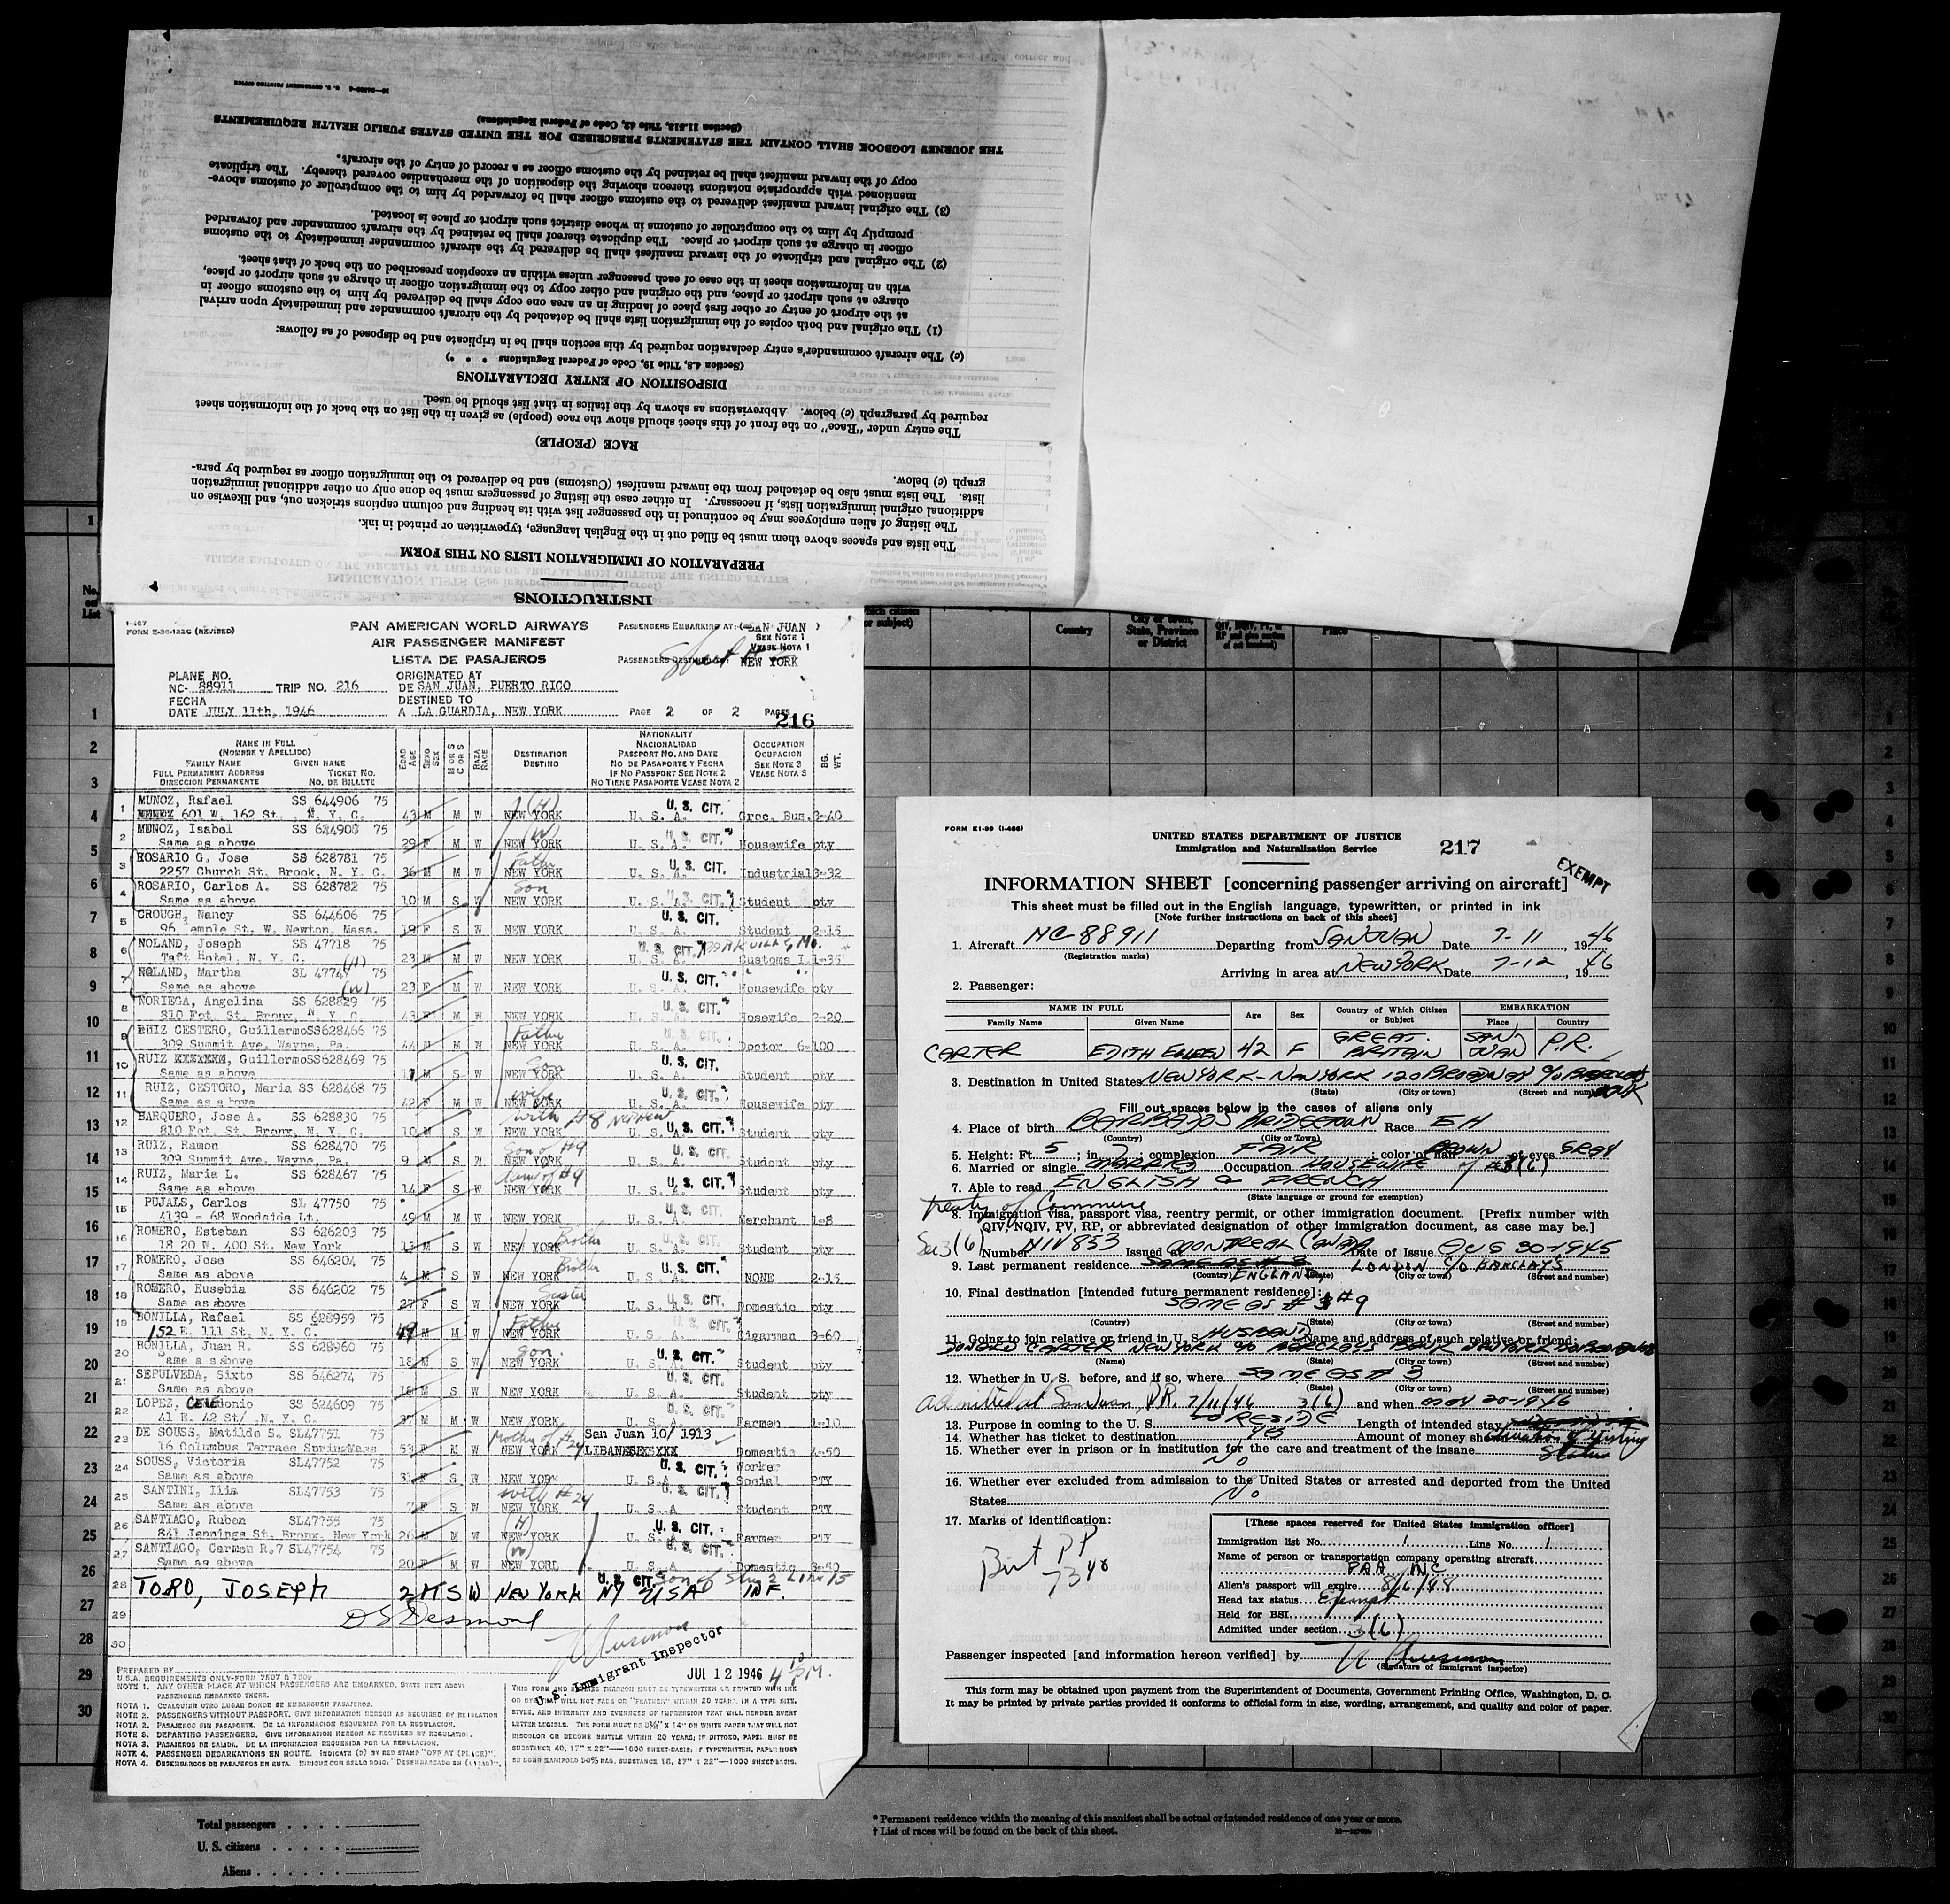 16—24588-4 U. S. GOVERNMENT PRINTING OFFICE
THE JOURNEY LOGBOOK SHALL CONTAIN THE STATEMENTS PRESCRIBED FOR THE UNITED STATES PUBLIC HEALTH REQUIREMENTS
INSTRUCTIONS
PREPARATION OF IMMIGRATION LISTS ON THIS FORM
The lists and spaces above them must be filled out in the English language, typewritten or printed in ink.
The listing of alien employees may be continued in the passenger list with its heading and column captions stricken out, and likewise on
additional original immigration lists, if necessary. In either case the listing of passengers must be done only on other additional immigration
lists. The lists must also be detached from the inward manifest (Customs) and be delivered to the immigration officer as required by para-
graph (c) below.
RACE (PEOPLE)
The entry under "Race" on the front of this sheet should show the race (people) as given in the list on the back of the information sheet
required by paragraph (c) below. Abbreviations as shown by the italics in that list should be used.
DISPOSITION OF ENTRY DECLARATIONS
(Section 4.8, Title 19, Code of Federal Regulations * * *)
(c) The aircraft commander's entry declaration required by this section shall be in triplicate and be disposed of as follows:
(1) The original and both copies of the immigration lists shall be detached by the aircraft commander and immediately upon arrival
at the airport of entry or other first place of landing in an area one copy shall be delivered by him to the customs officer in
charge at such airport or place, and the original and other copy to the immigration officer in charge at such airport or place,
with an information sheet in the case of each passenger unless within an exception prescribed on the back of that sheet.
(2) The original and triplicate of the inward manifest shall be delivered by the aircraft commander immediately to the customs
officer in charge at such airport or place. The duplicate thereof shall be retained by the aircraft commander and forwarded
promptly by him to the comptroller of customs in whose district such airport or place is located.
(3) The original inward manifest delivered to the customs officer shall be forwarded by him to the comptroller of customs above-
mentioned with appropriate notations thereon showing the disposition of the merchandise covered thereby. The triplicate
copy of the inward manifest shall be retained by the customs officer as a record of entry of the aircraft.
(Section 11.513, Title 42, Code of Federal Regulations)
I-467
FORM E-36-122C (REVISED)
PAN AMERICAN WORLD AIRWAYS
AIR PASSENGER MANIFEST
LISTA DE PASAJEROS
PASSENGERS EMBARKING AT: (SAN JUAN)
SEE NOTE 1
VEASE NOTA 1
PASSENGERS DESTINED TO: NEW YORK
PLANE NO.
NC- 88911 TRIP NO. 216
ORIGINATED AT
DE SAN JUAN, PUERTO RICO
FECHA
DATE JULY 11th, 1946
DESTINED TO
A LA GUARDIA, NEW YORK
PAGE 2 OF 2 PAGES
216
NAME IN FULL
(NOMBRE Y APELLIDO)
FAMILY NAME GIVEN NAME
FULL PERMANENT ADDRESS TICKET NO.
DIRECCION PERMANENTE NO. DE BILLETE
EDAD AGE
SEXO SEX
M OR S C OR S
RAZA RACE
DESTINATION DESTINO
NATIONALITY
NACIONALIDAD
PASSPORT NO. AND DATE
NO DE PASAPORTE Y FECHA
IF NO PASSPORT SEE NOTE 2
NO TIENE PASAPORTE VEASE NOTA 2
OCCUPATION
OCUPACION
SEE NOTE 3
VEASE NOTA 3
BG. WT.
1 MUNOZ, Rafael SS 644906 75 (H) U. S. CIT.
601 W. 162 St., N. Y. C. 43 M M W NEW YORK U. S. A. Groc. Bus. 3-40
2 MUNOZ, Isabel SS 644900 75 (W) U. S. CIT.
Same as above 29 F M W NEW YORK U. S. A. Housewife pty
3 ROSARIO G, Jose SS 628781 75 Father U. S. CIT.
2257 Church St. Brook, N. Y. C. 36 M M W NEW YORK U. S. A. Industrial 3-32
4 ROSARIO, Carlos A. SS 628782 75 Son U. S. CIT.
Same as above 10 M S W NEW YORK U. S. A. Student pty
5 CROUGH, Nancy SS 644606 75 U. S. CIT.
96 Temple St. W. Newton, Mass. 19 F S W NEW YORK U. S. A. Student 2-15
6 NOLAND, Joseph SS 47718 75 U. S. CIT.
Taft Hotel, N. Y. C. (H) 23 M M W NEW YORK U. S. A. Customs I. 1-35
7 NOLAND, Martha SL 47747 75 U. S. CIT.
Same as above (W) 23 F M W NEW YORK U. S. A. Housewife pty
8 NORIEGA, Angelina SS 628829 75 U. S. CIT.
810 Fot. St. Bronx, N. Y. C. 43 F M W NEW YORK U. S. A. Hosewife 2-20
9 RUIZ CESTERO, Guillermo SS628466 75 Father U. S. CIT.
309 Summit Ave. Wayne, Pa. 44 M M W NEW YORK U. S. A. Doctor 6-100
10 RUIZ Guillermo SS628469 75 Son U. S. CIT.
Same as above 17 M S W NEW YORK U. S. A. Student pty
11 RUIZ, CESTORO, Maria SS 628468 75 wife U. S. CIT.
Same as above 42 F M W NEW YORK U. S. A. Housewife pty
12 BARQUERO, Jose A. SS 628830 75 with #8 nephew U. S. CIT.
810 Fot. St. Bronx, N. Y. C. 10 M S W NEW YORK U. S. A. Student pty
13 RUIZ, Ramon SS 628470 75 Son of #9 U. S. CIT.
309 Summit Ave. Wayne, Pa. 9 M S W NEW YORK U. S. A. Student pty
14 RUIZ, Maria L. SS 628467 75 of #9 U. S. CIT.
Same as above 14 F S W NEW YORK U. S. A. Student pty
15 PUJALS, Carlos SL 47750 75 U. S. CIT.
4139 - 68 Woodside Lt. 49 M M W NEW YORK U. S. A. Merchant 1-8
16 ROMERO, Esteban SS 626203 75 Brother U. S. CIT.
18 20 W. 400 St. New York 13 M S W NEW YORK U. S. A. Student pty
17 ROMERO, Jose SS 646204 75 Brother U. S. CIT.
Same as above 4 M S W NEW YORK U. S. A. NONE 2-15
18 ROMERO, Eusebia SS 646202 75 Sister U. S. CIT.
Same as above 27 F S W NEW YORK U. S. A. Domestic pty
19 BONILLA, Rafael SS 628959 75 Father U. S. CIT.
152 E. 111 St. N. Y. C. 49 M M W NEW YORK U. S. A. Cigarman 3-60
20 BONILLA, Juan R. SS 628960 75 son. U. S. CIT.
ame a s above 18 M S W NEW YORK U. S. A. Student pty
21 SEPULVEDA, Sixto SS 646274 75 U. S. CIT.
Same as above 18 M S W NEW YORK U. S. A. Student pty
22 LOPEZ, CELEdonio SS 624609 75 U. S. CIT.
41 E. 42 St/ N. Y. C. 37 M M W NEW YORK U. S. A. Farmen 1-10
23 DE SOUSS, Matilde S. SL47751 75 Mother of #24 San Juan 10/ 1913
16 Columbus Terrace Spring Mass 53 F M W NEW YORK LIBANESE Domestic 4-50
24 SOUSS, Victoria SL47752 75 U. S. CIT. Worker
Same as above 31 F S W NEW YORK U. S. A. Social PTY
25 SANTINI, Ilia SL47753 75 with #24 U. S. CIT.
Same as above 7 F S W NEW YORK U. S. A Student PTY
26 SANTIAGO, Ruben SL47755 75 (H) U. S. CIT.
841 Jennings St. Bronx, New York 26 M M W NEW YORK U. S. A. Farmer PTY
27 SANTIAGO, Carmen R.7 SL47754 75 (W) U. S. CIT.
Same as above 20 F M W NEW YORL U. S. A Domestic 3-50
28 TORO, JOSEPH 2 M S W NEW YORK NY USA INF. U. S. CIT. Son of Line 15
29 DS Desmond
30
U.S. Immigrant Inspector
JUL 12 1946 4 PM.
PREPARED BY
U.S.A. REQUIREMENTS ONLY-FORM 7507 & 7509
NOTE 1. ANY OTHER PLACE AT WHICH PASSENGERS ARE EMBARKED, STATE NEXT ABOVE
PASSENGERS EMBARKED THERE.
NOTA 1. CUALQUIER OTRO LUGAR DONDE SE EMBARQUEN PASAJEROS.
NOTE 2. PASSENGERS WITHOUT PASSPORT. GIVE INFORMATION HEREON AS REQUIRED BY REGULATION
NOTA 2. PASAJEROS SIN PASAPORTE. DE LA INFORMACION REQUERIDA POR LA REGULACION.
NOTE 3. DEPARTING PASSENGERS. GIVE INFORMATION HEREON AS REQUIRED BY REGULATION.
NOTA 3. PASAJEROS DE SALIDA. DE LA INFORMACION REQUERIDA POR LA REGULACION.
NOTE 4. PASSENGER DEBARKATIONS EN ROUTE. INDICATE (D) BY RED STAMP "OFF AT (PLACE)".
NOTA 4. DESEMBARCOS DE PASAJEROS EN RUTA. INDIQUE CON SELLO ROJO: "DESEMBARCADO EN (LUGAR)".
THIS FORM AND ENTRIES THEREON MUST BE TYPEWRITTEN OR PRINTED WITH INK
OR BY MATERIAL WILL NOT FADE OR "FEATHER" WITHIN 20 YEARS, IN A TYPE SIZE,
STYLE, AND INTENSITY AND EVENNESS OF IMPRESSION THAT WILL RENDER EVERY
LETTER LEGIBLE. THE FORM MUST BE 8½" X 14" ON WHITE PAPER THAT WILL NOT
DISCOLOR OR BECOME BRITTLE WITHIN 20 YEARS; IF DITTOED, PAPER MUST BE
SUBSTANCE 40, 17" X 22"—1000 SHEET-BASIS; IF TYPEWRITTEN, PAPER MUST
BE BOND MANIFOLD 50% RAG, SUBSTANCE 18, 17" X 22"—1000 SHEET-BASIS.
FORM E1-99 (I-466)
UNITED STATES DEPARTMENT OF JUSTICE
Immigration and Naturalization Service
217
EXEMPT
INFORMATION SHEET [concerning passenger arriving on aircraft]
This sheet must be filled out in the English language, typewritten, or printed in ink
[Note further instructions on back of this sheet]
1. Aircraft NC-88911 Departing from SAN JUAN Date 7-11, 1946
(Registration marks)
Arriving in area at NEW YORK Date 7-12, 1946
2. Passenger:
NAME IN FULL Age Sex Country of Which Citizen or Subject EMBARKATION
Family Name Given Name Place Country
CARTER EDITH EILEEN 42 F GREAT BRITAIN SAN JUAN P.R.
3. Destination in United States NEW YORK - NEW YORK 120 BROADWAY c/o BARCLAYS BANK
(State) (City or town) (Street and number)
Fill out spaces below in the cases of aliens only
4. Place of birth BARBADOS BRIDGETOWN Race EH
(Country) (City or Town)
5. Height: Ft. 5; in. 7; complexion FAIR; color of hair BROWN of eyes GREY
6. Married or single MARRIED Occupation HOUSEWIFE of #3(6)
7. Able to read ENGLISH & FRENCH
(State language or ground for exemption)
treaty of Commerce
8. Immigration visa, passport visa, reentry permit, or other immigration document. [Prefix number with
QIV, NQIV, PV, RP, or abbreviated designation of other immigration document, as case may be.]
Sec 3(6) Number NIV 853 Issued at MONTREAL CANADA Date of Issue AUG 30-1945
9. Last permanent residence ENGLAND LONDON c/o BARCLAYS
(Country) (State) (City or town) (Street and number)
10. Final destination [intended future permanent residence]:
SAME AS #9
(Country) (State) (City or town) (Street and number)
11. Going to join relative or friend in U. S. HUSBAND Name and address of such relative or friend:
DONALD CARTER NEW YORK c/o BARCLAYS BANK NEW YORK
(Name) (State) (City or town) (Street and number)
12. Whether in U. S. before, and if so, where SAME AS # 3
(State) (City or town) (Street and number)
admitted at San Juan, P.R. 7/11/46 3(6) and when MAY 20-1946
13. Purpose in coming to the U. S. TO RESIDE Length of intended stay
14. Whether has ticket to destination YES Amount of money shown
15. Whether ever in prison or in institution for the care and treatment of the insane
NO
16. Whether ever excluded from admission to the United States or arrested and deported from the United
States NO
17. Marks of identification:
Brit PP
[These spaces reserved for United States immigration officer]
Immigration list No. 1 Line No. 1
Name of person or transportation company operating aircraft
PAA INC
Alien's passport will expire 8/6/48
Head tax status Exempt
Held for BSI
Admitted under section 3(6)
Passenger inspected [and information hereon verified] by
(Signature of immigrant inspector)
This form may be obtained upon payment from the Superintendent of Documents, Government Printing Office, Washington, D. C.
It may be printed by private parties provided it conforms to official form in size, wording, arrangement, and quality and color of paper.
Total passengers
U. S. citizens
Aliens
* Permanent residence within the meaning of this manifest shall be actual or intended residence of one year or more.
† List of races will be found on the back of this sheet.